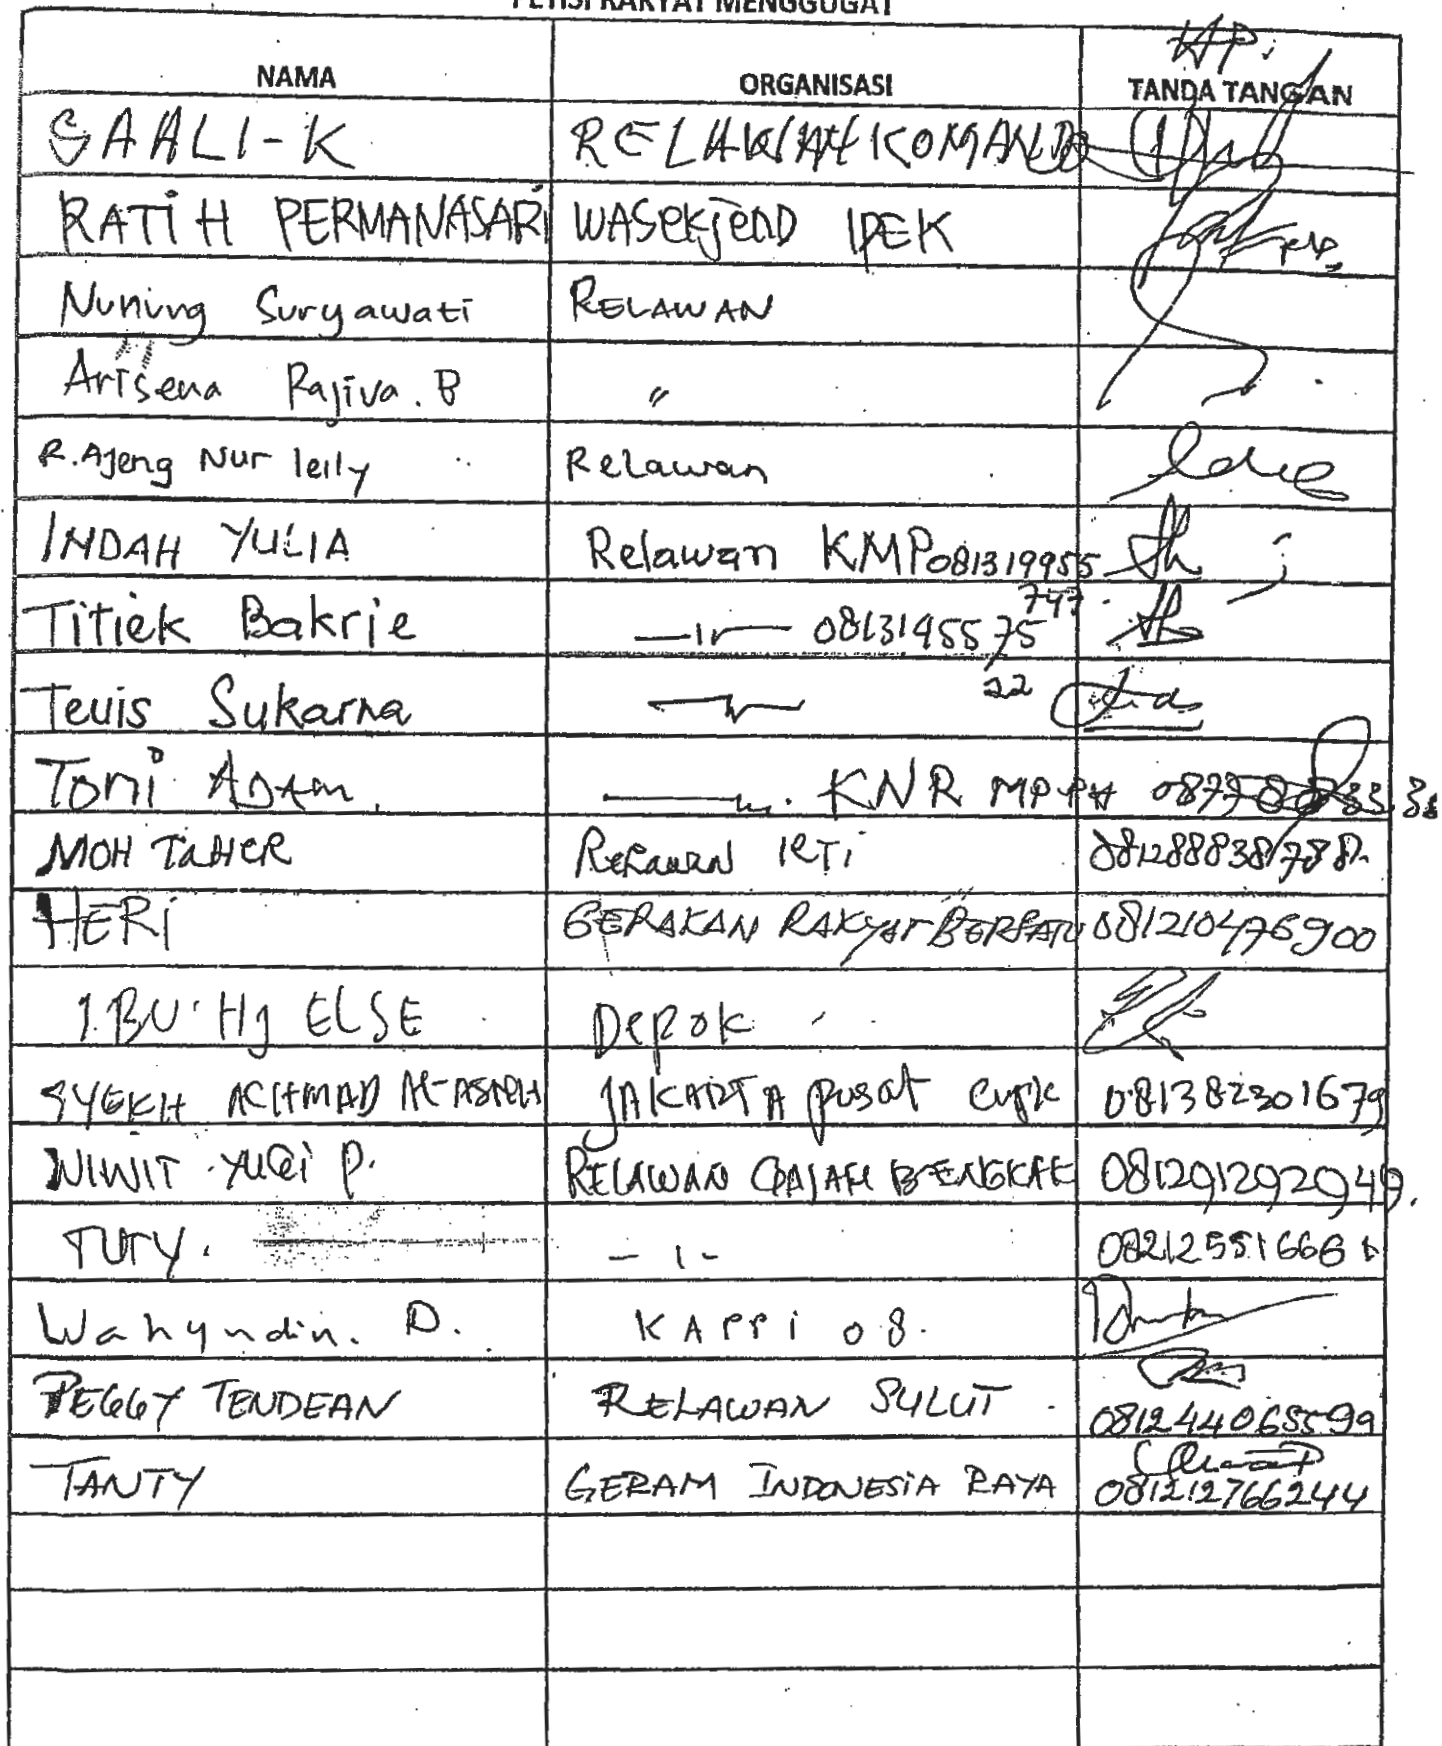 PETISI RAKYAT MENGGUGAT
HP.
NAMA ORGANISASI TANDA TANGAN
SAALI-K RELAWAN KOMANDO
RATIH PERMANASARI WASEKJEND IPEK
Nuning Suryawati RELAWAN
Arisena Rajiva. B "
R. Ajeng Nur leily Relawan
INDAH YULIA Relawan KMP 081319955
747
Titiek Bakrie —"— 0813195575
22
Teuis Sukarna —"—
Toni ADAM —"— KNR MPPH
MOH TAHER RELAWAN
HERI GERAKAN RAKYAT BERSATU 081210476900
IBU Hj ELSE Depok
SYEKH ACHMAD JAKARTA pusat 081382301679
NINIT P. RELAWAN GAJAH BENGKAK 081291292949.
TUTY. - " - 08212551666
Wahyudin. D. KAPPI 08.
PEGGY TENDEAN RELAWAN SULUT
081244065599
TANTY GERAM INDONESIA RAYA
081212766244